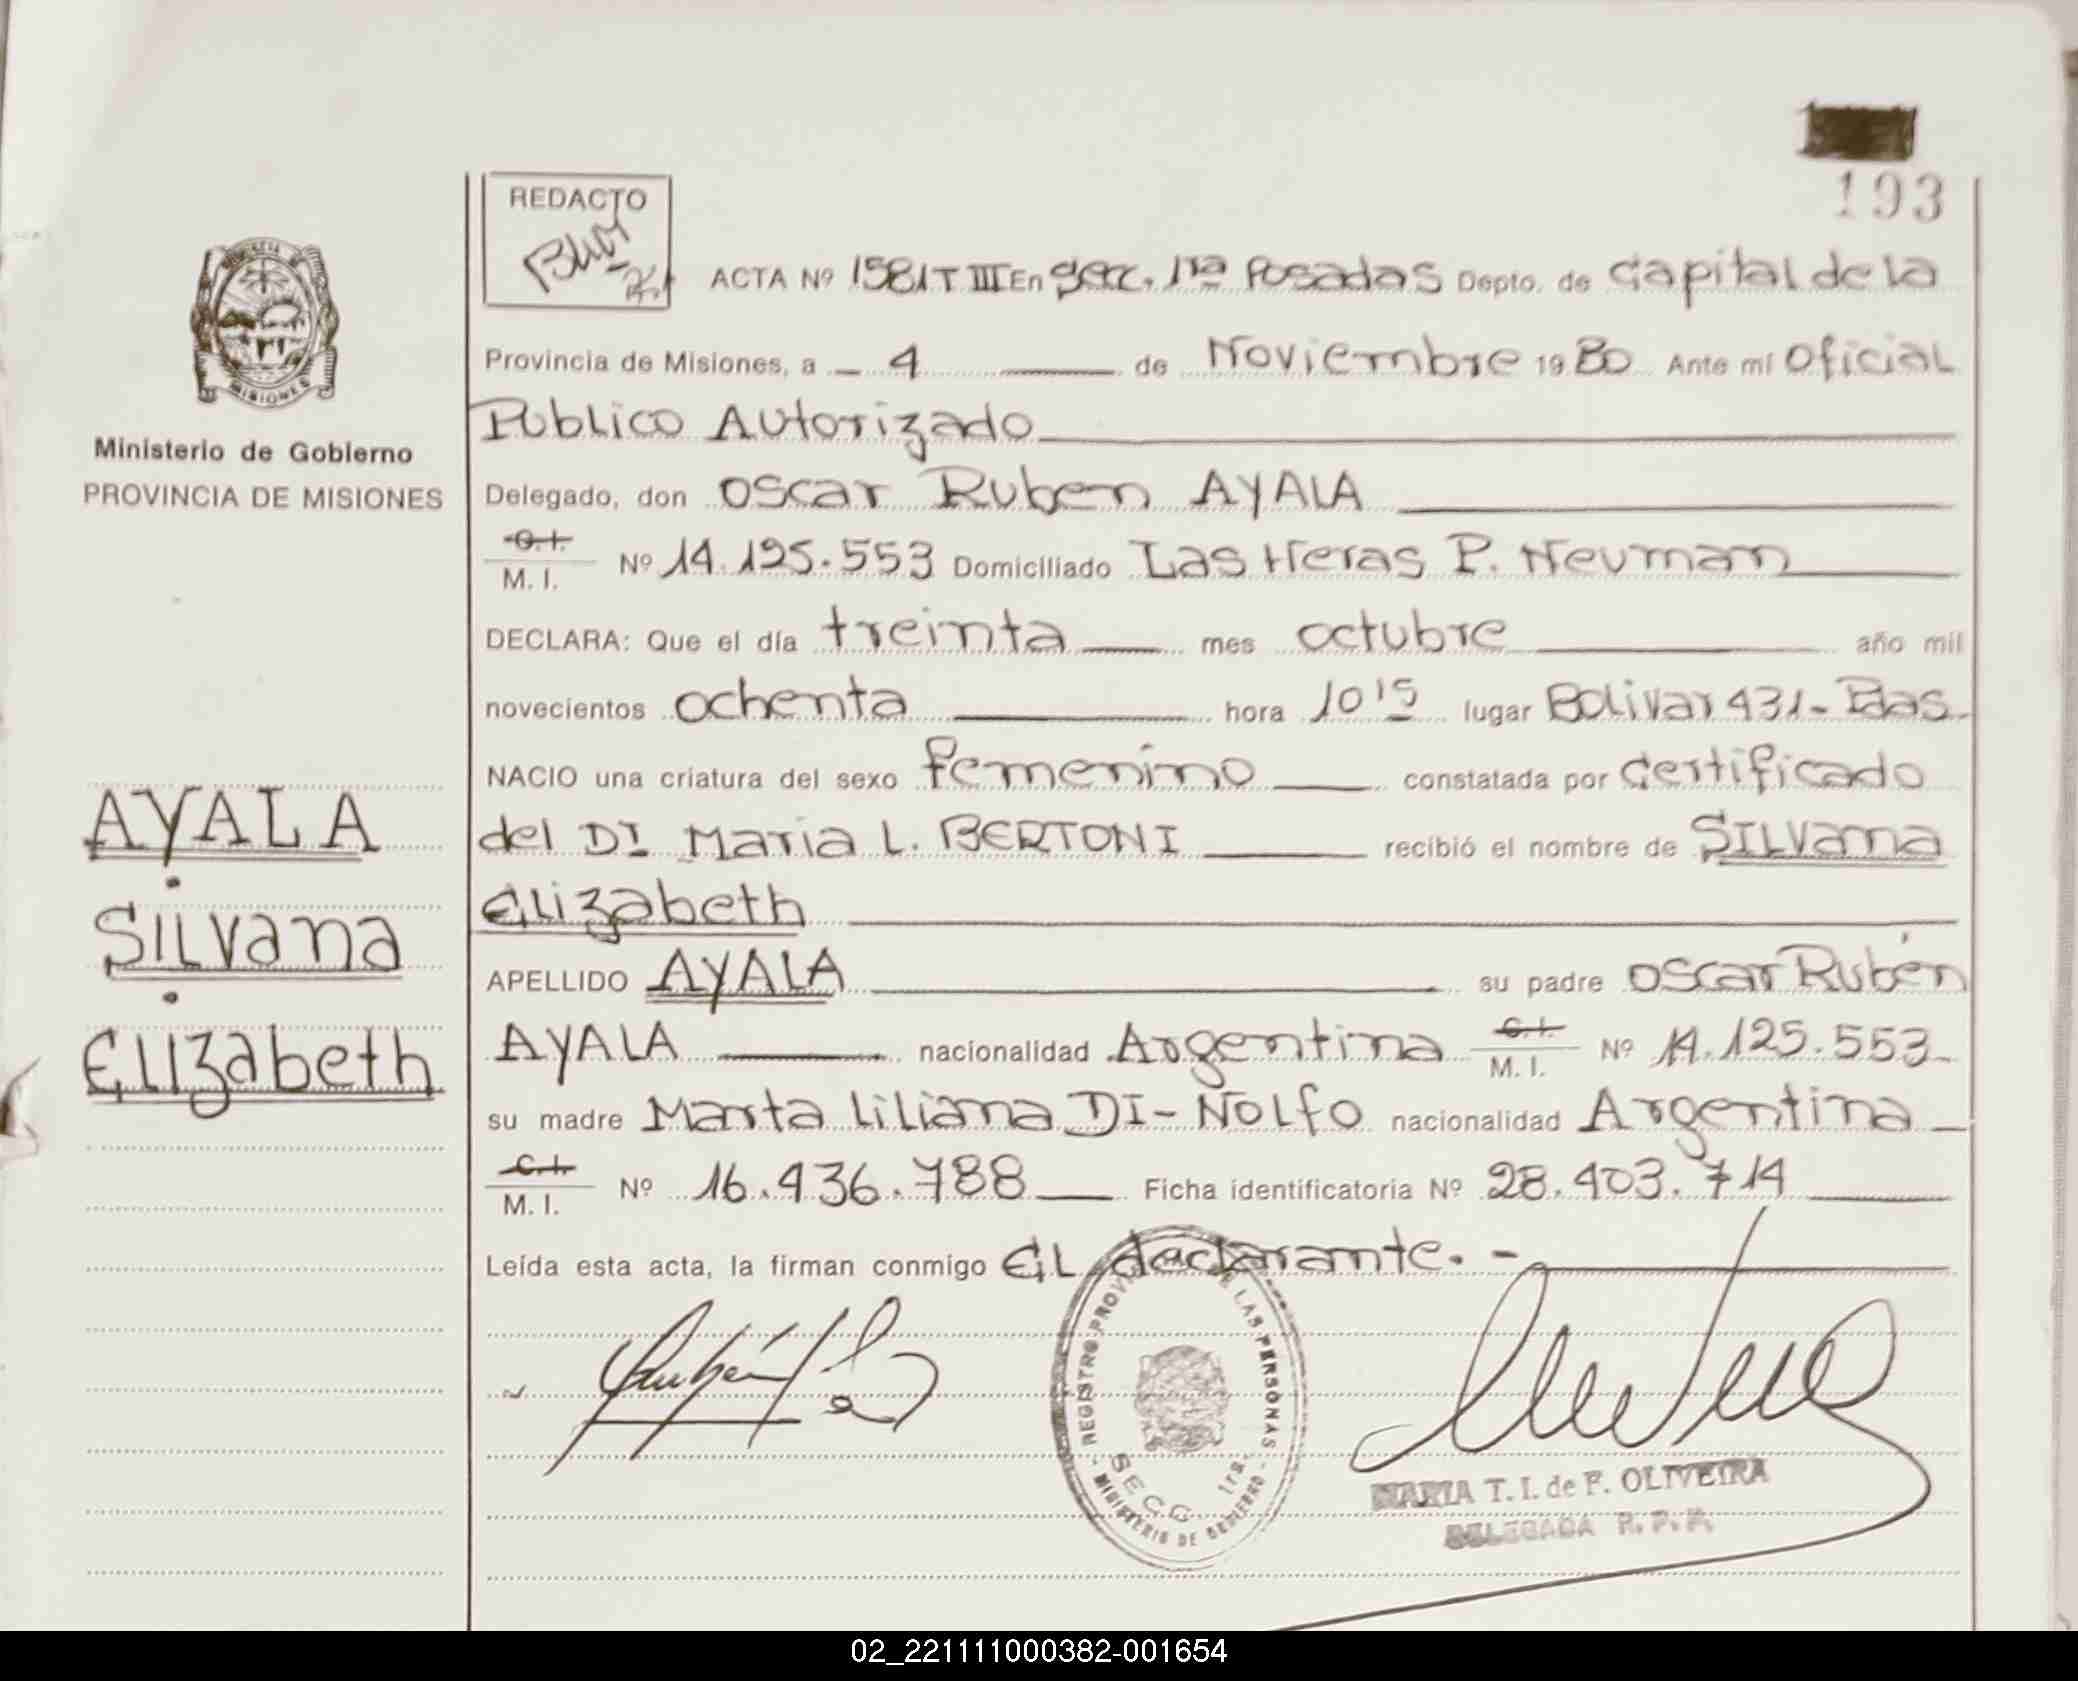 193
REDACTO
ACTA Nº 1581 T III En Secc. 1ra Posadas Depto. de Capital de la
Provincia de Misiones, a 4 de Noviembre 1980 Ante mí Oficial
Publico Autorizado
Ministerio de Gobierno
PROVINCIA DE MISIONES
Delegado, don Oscar Ruben AYALA
C.I.
M. I. Nº 14.125.553 Domiciliado Las Heras P. Neuman
DECLARA: Que el día treinta mes octubre año mil
novecientos ochenta hora 10 15 lugar Bolivar 431- Pdas
NACIO una criatura del sexo femenino constatada por Certificado
AYALA
del Dr Maria L. BERTONI recibió el nombre de SILVana
Silvana
Elizabeth
APELLIDO AYALA su padre Oscar Rubén
Elizabeth
AYALA nacionalidad Argentina C.I. M. I. Nº 14.125.553
su madre Marta Liliana DI-NOLfO nacionalidad Argentina
C.I.
M. I. Nº 16.436.788 Ficha identificatoria Nº 28.403.714
Leída esta acta, la firman conmigo El declarante.-
REGISTRO PROV LAS PERSONAS
SECC. 1ra.
MINISTERIO DE GOBIERNO
MARIA T. I. de F. OLIVEIRA
DELEGADA R. P. P.
02_221111000382-001654